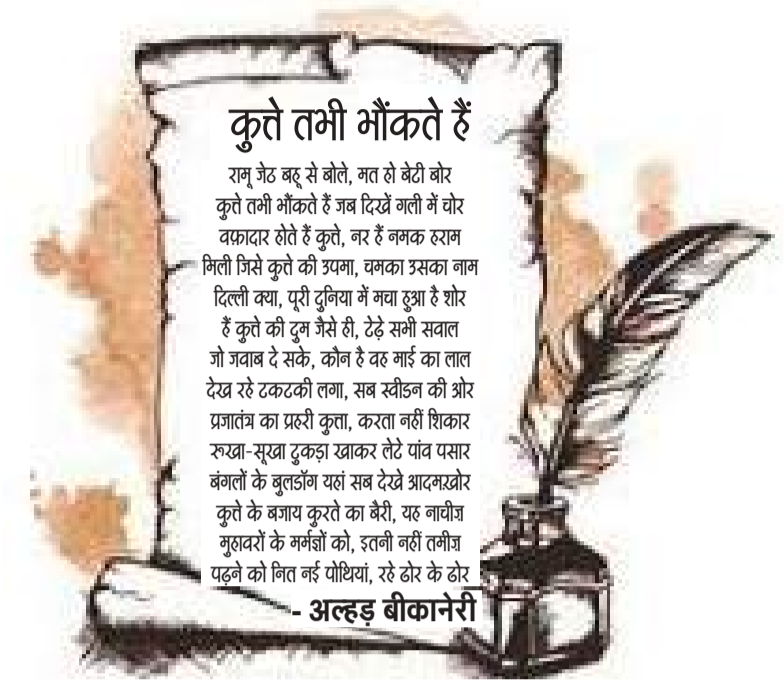 कुत्ते तभी भौंकते हैं
रामू जेठ बहू से बोले, मत हो बेटी बोर
कुत्ते तभी भौंकते हैं जब दिखें गली में चोर
वफ़ादार होते हैं कुत्ते, नर हैं नमक हराम
मिली जिसे कुत्ते की उपमा, चमका उसका नाम
दिल्ली क्या, पूरी दुनिया में मचा हुआ है शोर
हैं कुत्ते की दुम जैसे ही, टेढ़े सभी सवाल
जो जवाब दे सके, कौन है वह माई का लाल
देख रहे टकटकी लगा, सब स्वीडन की ओर
प्रजातंत्र का प्रहरी कुत्ता, करता नहीं शिकार
रूखा-सूखा टुकड़ा खाकर लेटे पांव पसार
बंगलों के बुलडॉग यहां सब देखे आदमख़ोर
कुत्ते के बजाय कुरते का बैरी, यह नाचीज
मुहावरों के मर्मज्ञों को, इतनी नहीं तमीज
पढ़ने को नित नई पोथियां, रहे ढोर के ढोर
- अल्हड़ बीकानेरी